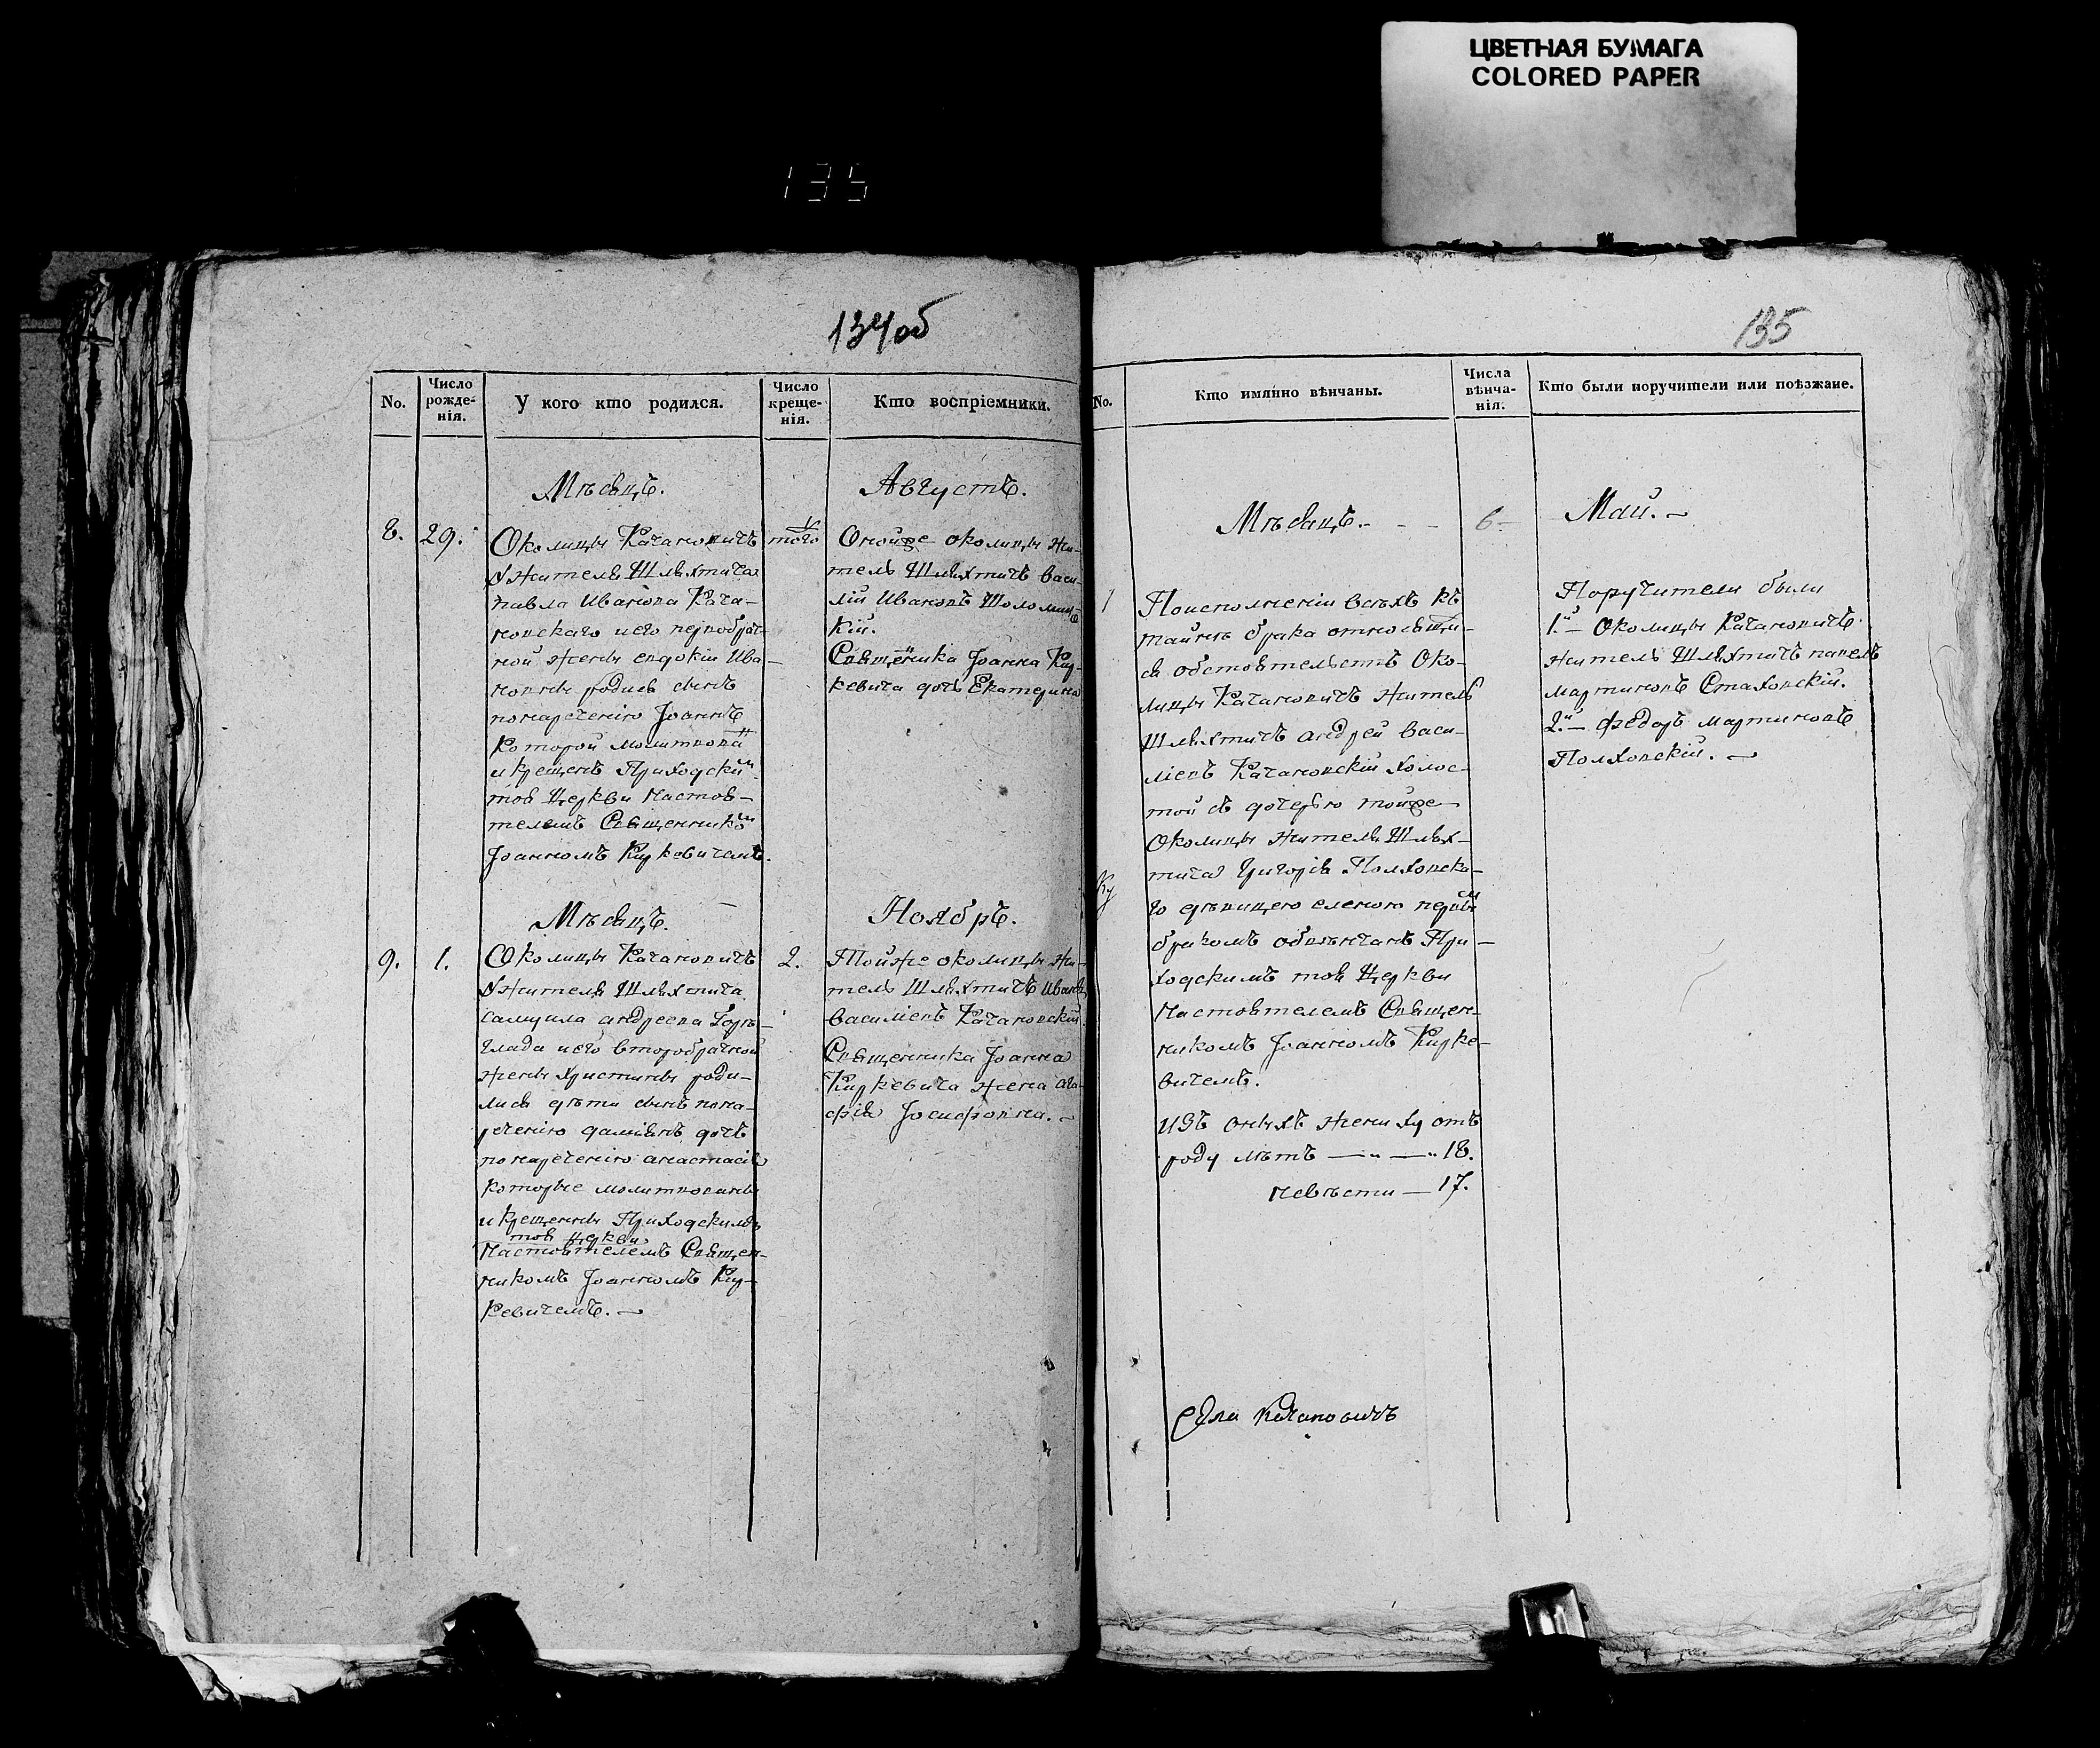 ЦВЕТНАЯ БУМАГА
COLORED PAPER
135
134об
No.
Число рожде-нія.
У кого кто родился.
Число креще-нія.
Кто воспріемники.
Мѣсяцъ.
Августъ.
8.
29.
Околицы Качановичъ
жителя Шляхтича
павла Иванова Кача-
новскаго иего первобрач-
ной жены евдокіи Ива-
новны родился сынъ
понареченію Іоаннъ
Которой молитвованъ
и крещенъ Приходским
тоя Церкви Настоя-
телемъ Священником
Іоанномъ Киркевичемъ.
того
Онойже околицы жи-
тель Шляхтичъ васи-
лій Ивановъ Шоломиц-
кій.
Священика Іоанна Кир-
кевича дочь Екатерина
Мѣсяцъ.
Ноябрь.
9.
1.
Околицы Качановичъ
жителя Шляхтича
самуила андреева
иего второбрачной
жены Христины роди-
лися дѣти сынъ пона-
реченію даміянъ дочь
понареченію анастасія
которые молитвованы
и крещенны Приходскимъ
тоя церкви
Настоятелемъ Священ-
никомъ Іоанномъ Кир-
кевичемъ.
2.
Тойже околицы жи-
тель Шляхтичъ Иванъ
василіевъ Качановскій
Священника Іоанна
Киркевича жена ага-
фія Іосифовна.
135
No.
Кто имянно вѣнчаны.
Числа вѣнча-нія.
Кто были поручители или поѣзжане.
Мѣсяцъ.
6
Май.
1
Поисполненіи всѣхъ къ
тайнѣ брака относящи-
ся обстоятельствъ Око-
лицы Качановичъ житель
Шляхтичъ андрей васи-
ліевъ Качановскій холос-
той съ дочерью тойже
Околицы жителя Шлях-
тича Григорія Полховска-
го дѣвицею еленою первым
бракомъ обвѣнчанъ При-
ходскимъ тоя Церкви
Настоятелемъ Священ-
никомъ Іоанномъ Кирке-
вичемъ.
изъ оныхъ жениху отъ
роду лѣтъ — 18.
невѣсти — 17.
Поручители были
1.й — Околицы Качановичъ
житель Шляхтичъ павелъ
мартиновъ Стаховскій.
2.й — федоръ мартиновъ
Полховскій.
Ку
Села Качановичъ